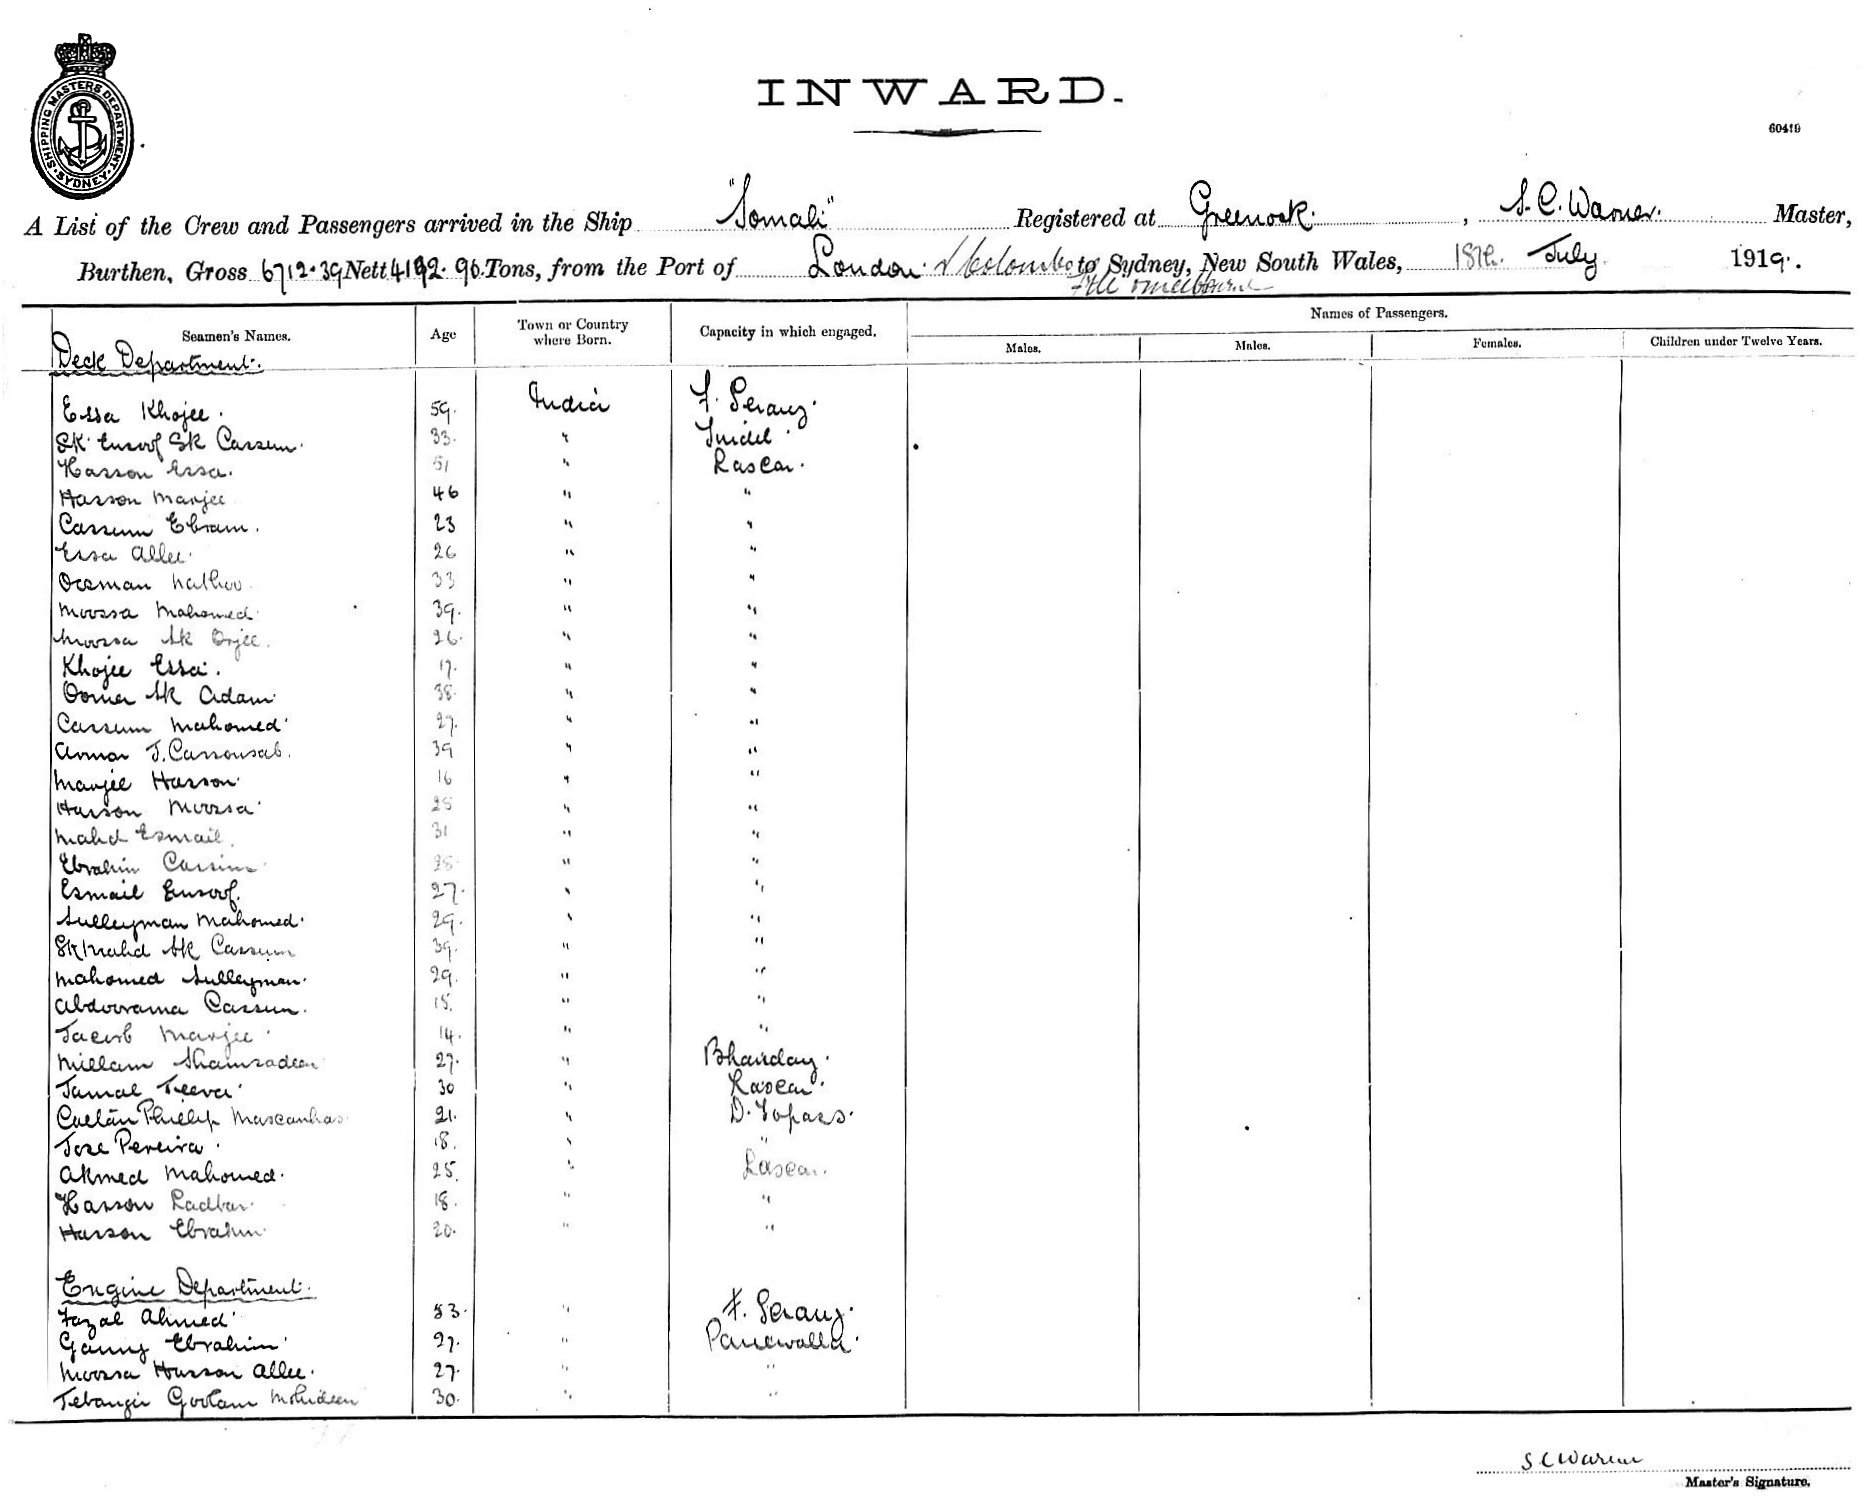 SHIPPING MASTERS DEPARTMENT. SYDNEY.
INWARD.
60419
A List of the Crew and Passengers arrived in the Ship "Somali" Registered at Greenock. , S. C. Warner. Master,
Burthen, Gross 6712.39 Nett 4192.96 Tons, from the Port of London & Colombo to Sydney, New South Wales, 18th. July 1919.
Melbourne
Names of Passengers.
Seamen's Names. Age Town or Country where Born. Capacity in which engaged. Males. Males. Females. Children under Twelve Years.
Deck Department.
Essa Khojee. 59. India F. Serang.
SK. Eusoof SK Cassum. 33. "
Hasson Essa. 51 " Lascar.
Hasson Manjee 46 " "
Cassum Ebram. 23 " "
Essa Allee. 26 " "
Oosman Nathoo. 33 " "
Moossa Mahomed. 39. " "
Moossa Sk 26. " "
Khojee Essa. 17. " "
Oomer Sk Adam. 38. " "
Cassum Mahomed. 27. " "
39 " "
Manjee Hasson. 16 " "
Hasson Moossa. 25 " "
Mahd Esmail. 31 " "
Ebrahim Cassim. 28. " "
Esmail Eusoof. 27. " "
Sulleyman Mahomed. 29. " "
SK Mahd Sk Cassum 39. " "
Mahomed Sulleyman. 29. " "
Cassum. 15. " "
Jacoob Manjee. 14. " "
Shamsadeen 27. " Bhanday.
Jamal Jeeva. 30 " Lascar.
Caetan Phillip Mascanhas. 21. " D. Topass.
Jose Pereira. 18. " "
Ahmed Mahomed. 25. " Lascar.
Hasson 18. " "
Hasson Ebrahim. 20. " "
Engine Department.
Fazal Ahmed. 53. " F. Serang.
Ganny Ebrahim. 27. " Paniwalla.
Moossa Hasson Allee. 27. " "
Goolam Mohideen 30. " "
S C Warner
Master's Signature.